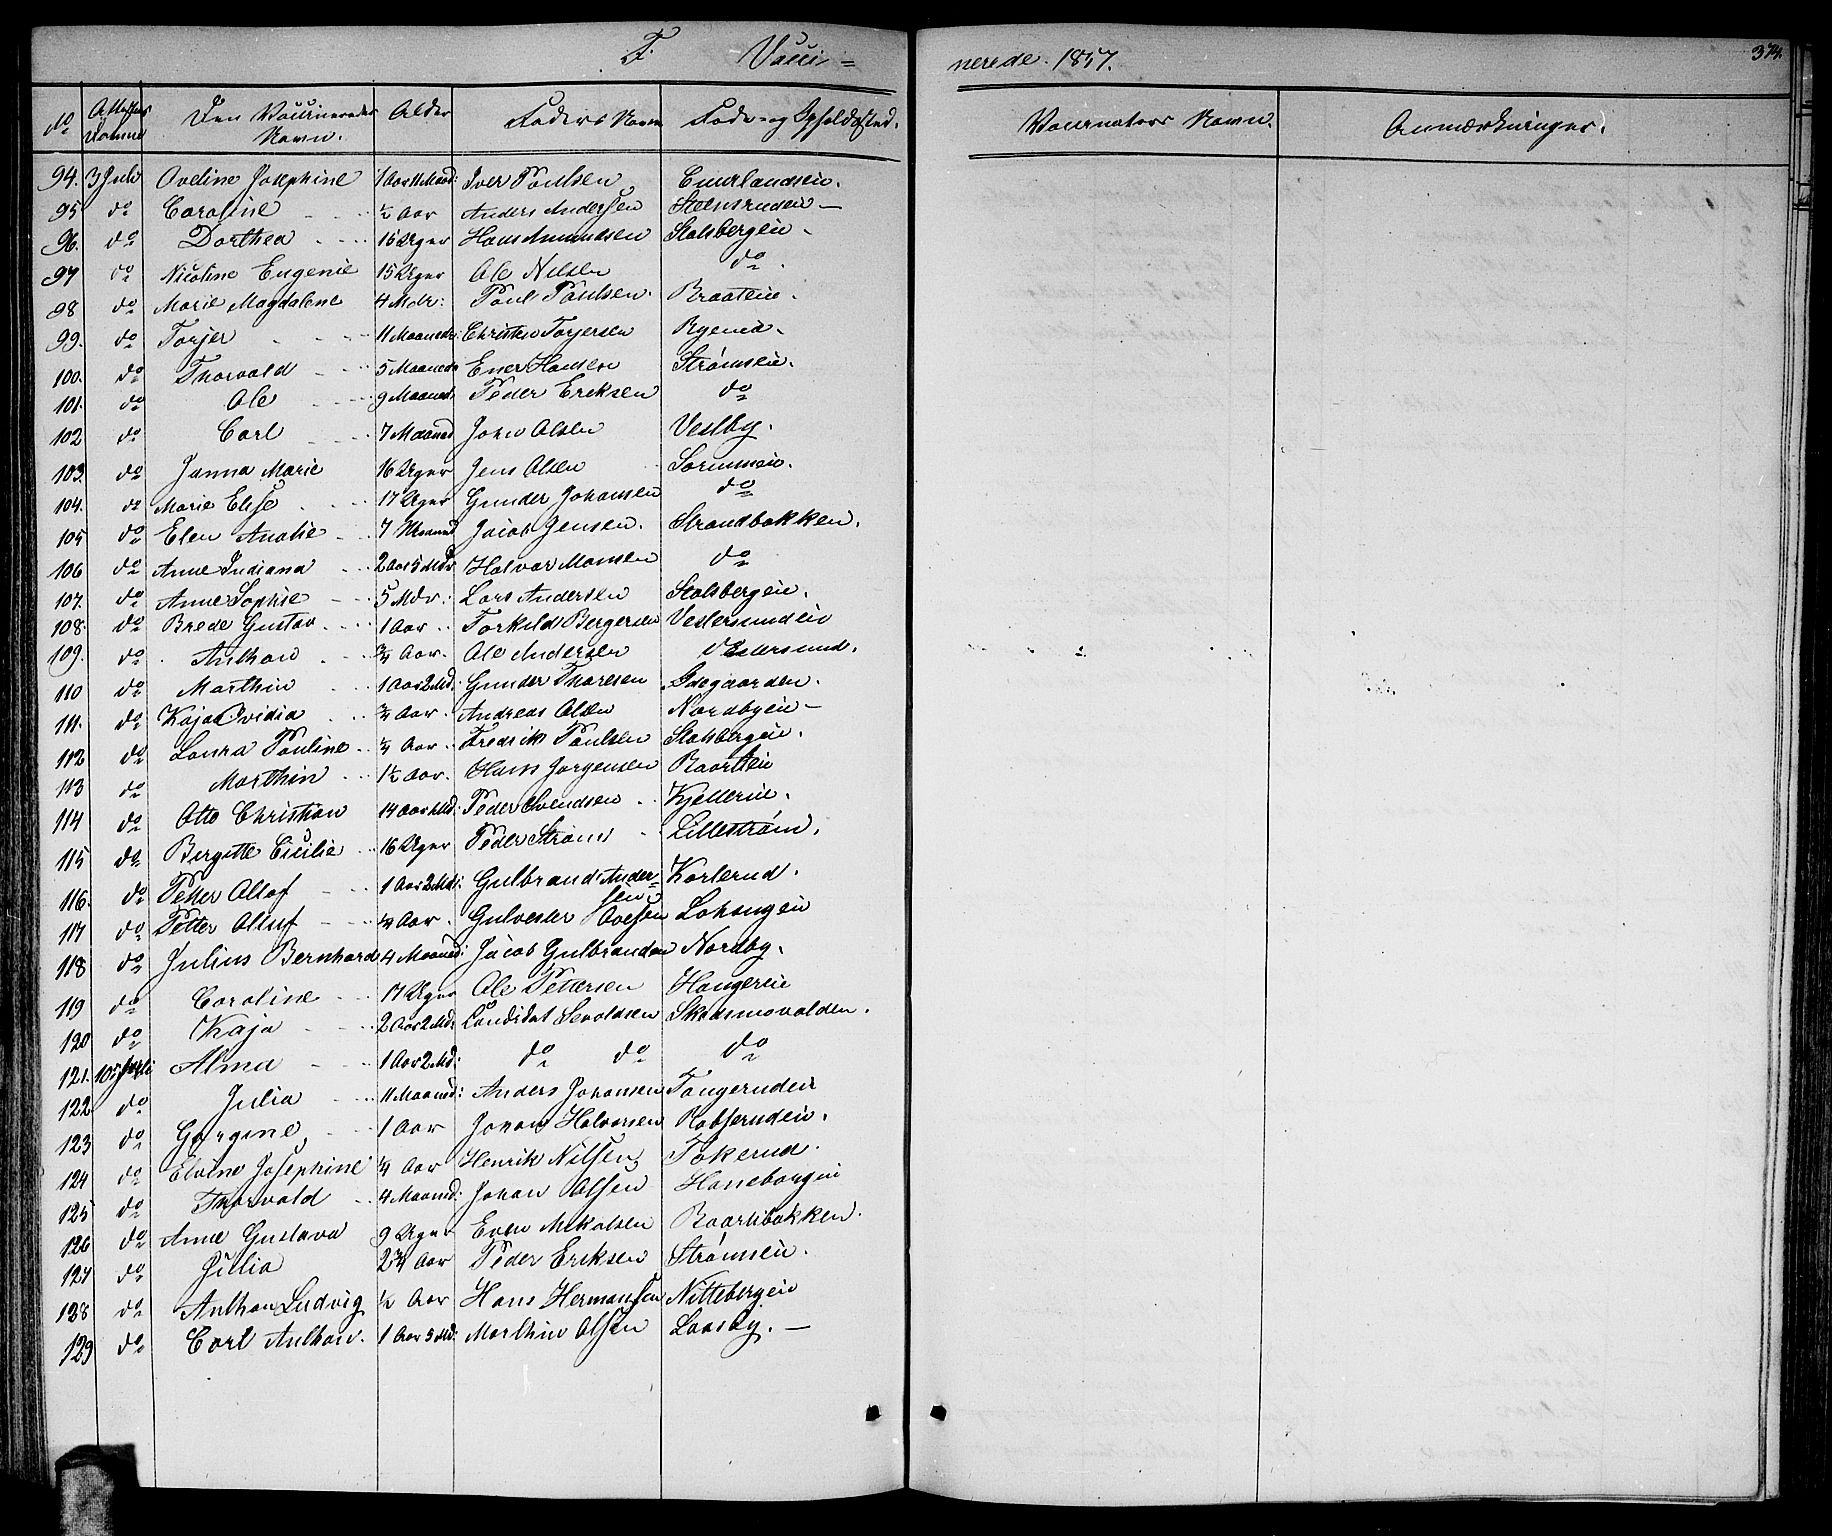 F. Vacci=
nerede. 1857.
374.
No Attestens Datum Den Vaccineredes Navn. Alder Faders Navn Føde- og Opholdssted.
Vaccinators Navn. Anmærkninger.
94. 3 Juli Oveline Josephine 1 Aar 11 Maad: Iver Paulsen
95 do Caroline ½ Aar Anders Andersen Steensrudeie
96. do Dorthea 15 Uger Hans Amundsen Stalsbergeie
97 do Nicoline Eugenie 15 Uger Ole Nilsen do
98 do Marie Magdalene 4 Mdr: Paul Paulsen Braateie
99. do Torjer 11 Maaneder Christen Torjersen Ryeneid
100. do Thorvald 5 Maaneder Ener Hansen Strømseie
101. do Ole 9 Maaned Peder Eriksen do
102 do Carl 7 Maaned John Olsen Vestby.
103. do Janna Marie 16 Uger Jens Olsen Sørumseie.
104. do Marie Elise 17 Uger Gunder Johansen do
105 do Elen Analie 7 Maaned Jacob Jensen. Strandbakken.
106 do Anne Indiana 2 Aar 5 Mdr Halvor Monsen do
107. do Anne Sophie 5 Mdr: Lars Andersen Stalsbergeie.
108. do Brede Gustav 1 Aar Torkild Bergersen Vestersundeie
109. do Anthon ¾ Aar. Ole Andersen Vestersund.
110 do Marthin 1 Aar 2 Md: Gunder Thoresen
111. do Kaja Ovidia ¾ Aar. Andreas Olsen Nordbyeie
112 do Laura Pauline ¼ Aar Fredrik Paulsen Stalsbergeie.
113 do Marthin 1½ Aar. Hans Jørgensen
114 do Otto Christian 14 Aar Peder Svendsen Kjellereie.
115 do Birgitte Cicilie 16 Uger Peder Strøm Lillestrøm.
116. do Petter Ollaf 1 Aar 2 Md: Gulbrand Ander-
sen Korterud.
117 do Petter Olluf ¼ Aar. Gulvester Ovesen
118 do Julius Bernhard 4 Maaned: Jacob Gulbrandsen Nordby.
119 do Caroline 17 Uger Ole Pettersen Haugereie
120 do Kaja 2 Aar 2 Md: Candidat Sevaldsen Skedsmovolden.
121. 10 Juli Alma 1 Aar 2 Md: do do do
122 do Julia 11 Maaned: Anders Johansen Tangerudeie
123 do Gurgine 1 Aar Johan Halvorsen Robserudeie.
124 do Elvine Josephine ¼ Aar Henrik Nilsen Tokerud.
125 do Thorvald 4 Maaned: Johan Olsen Haneborgeie
126 do Anne Gustava 9 Uger Even Mikalsen Baarlibakken.
127 do Julia 2¾ Aar Peder Eriksen Strømseie.
128 do Anthon Ludvig ½ Aar Hans Hermansen Nittebergeie
129 do Carl Anthon. 1 Aar 3 Md: Marthin Olsen Laasby.